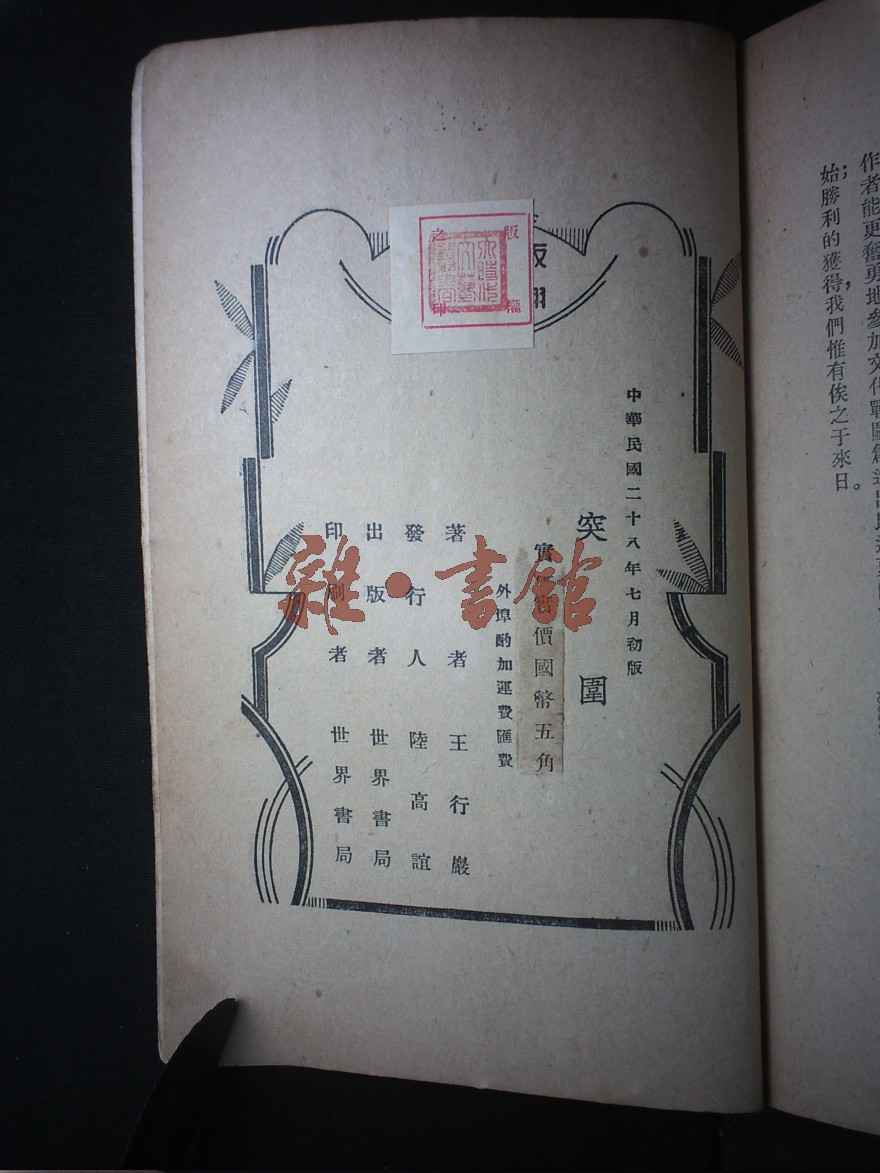 作者能更奮勇地參加文化戰鬭
始勝利的獲得，我們惟有俟之于來日。
版權
之印
中華民國二十八年七月初版
突圍
實價國幣五角
外埠酌加運費匯費
著者王行巖
發行人陸高誼
出版者世界書局
印刷者世界書局
雜·書館